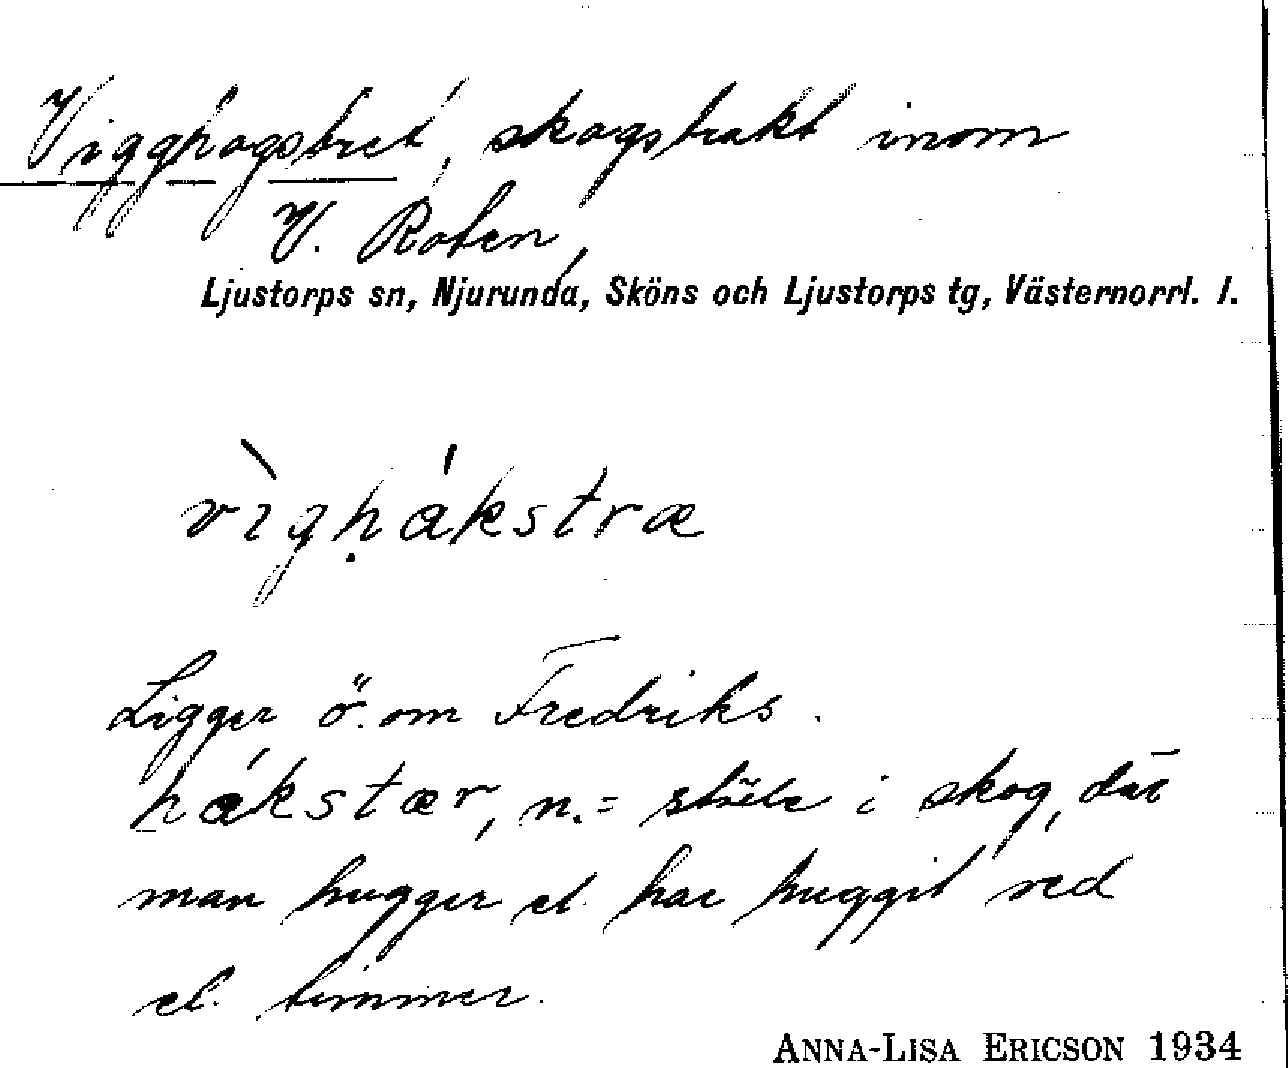 Vigghagstret, skogstrakt inom
V. Roten,
Ljustorps sn, Njurunda, Sköns och Ljustorps tg, Västernorrl. l.
vìghákstræ
Ligger ö. om Fredriks.
hákstær, n. = ställe i skog, där
man hugger el. har huggit ved
el. timmer.
ANNA-LISA ERICSON 1934